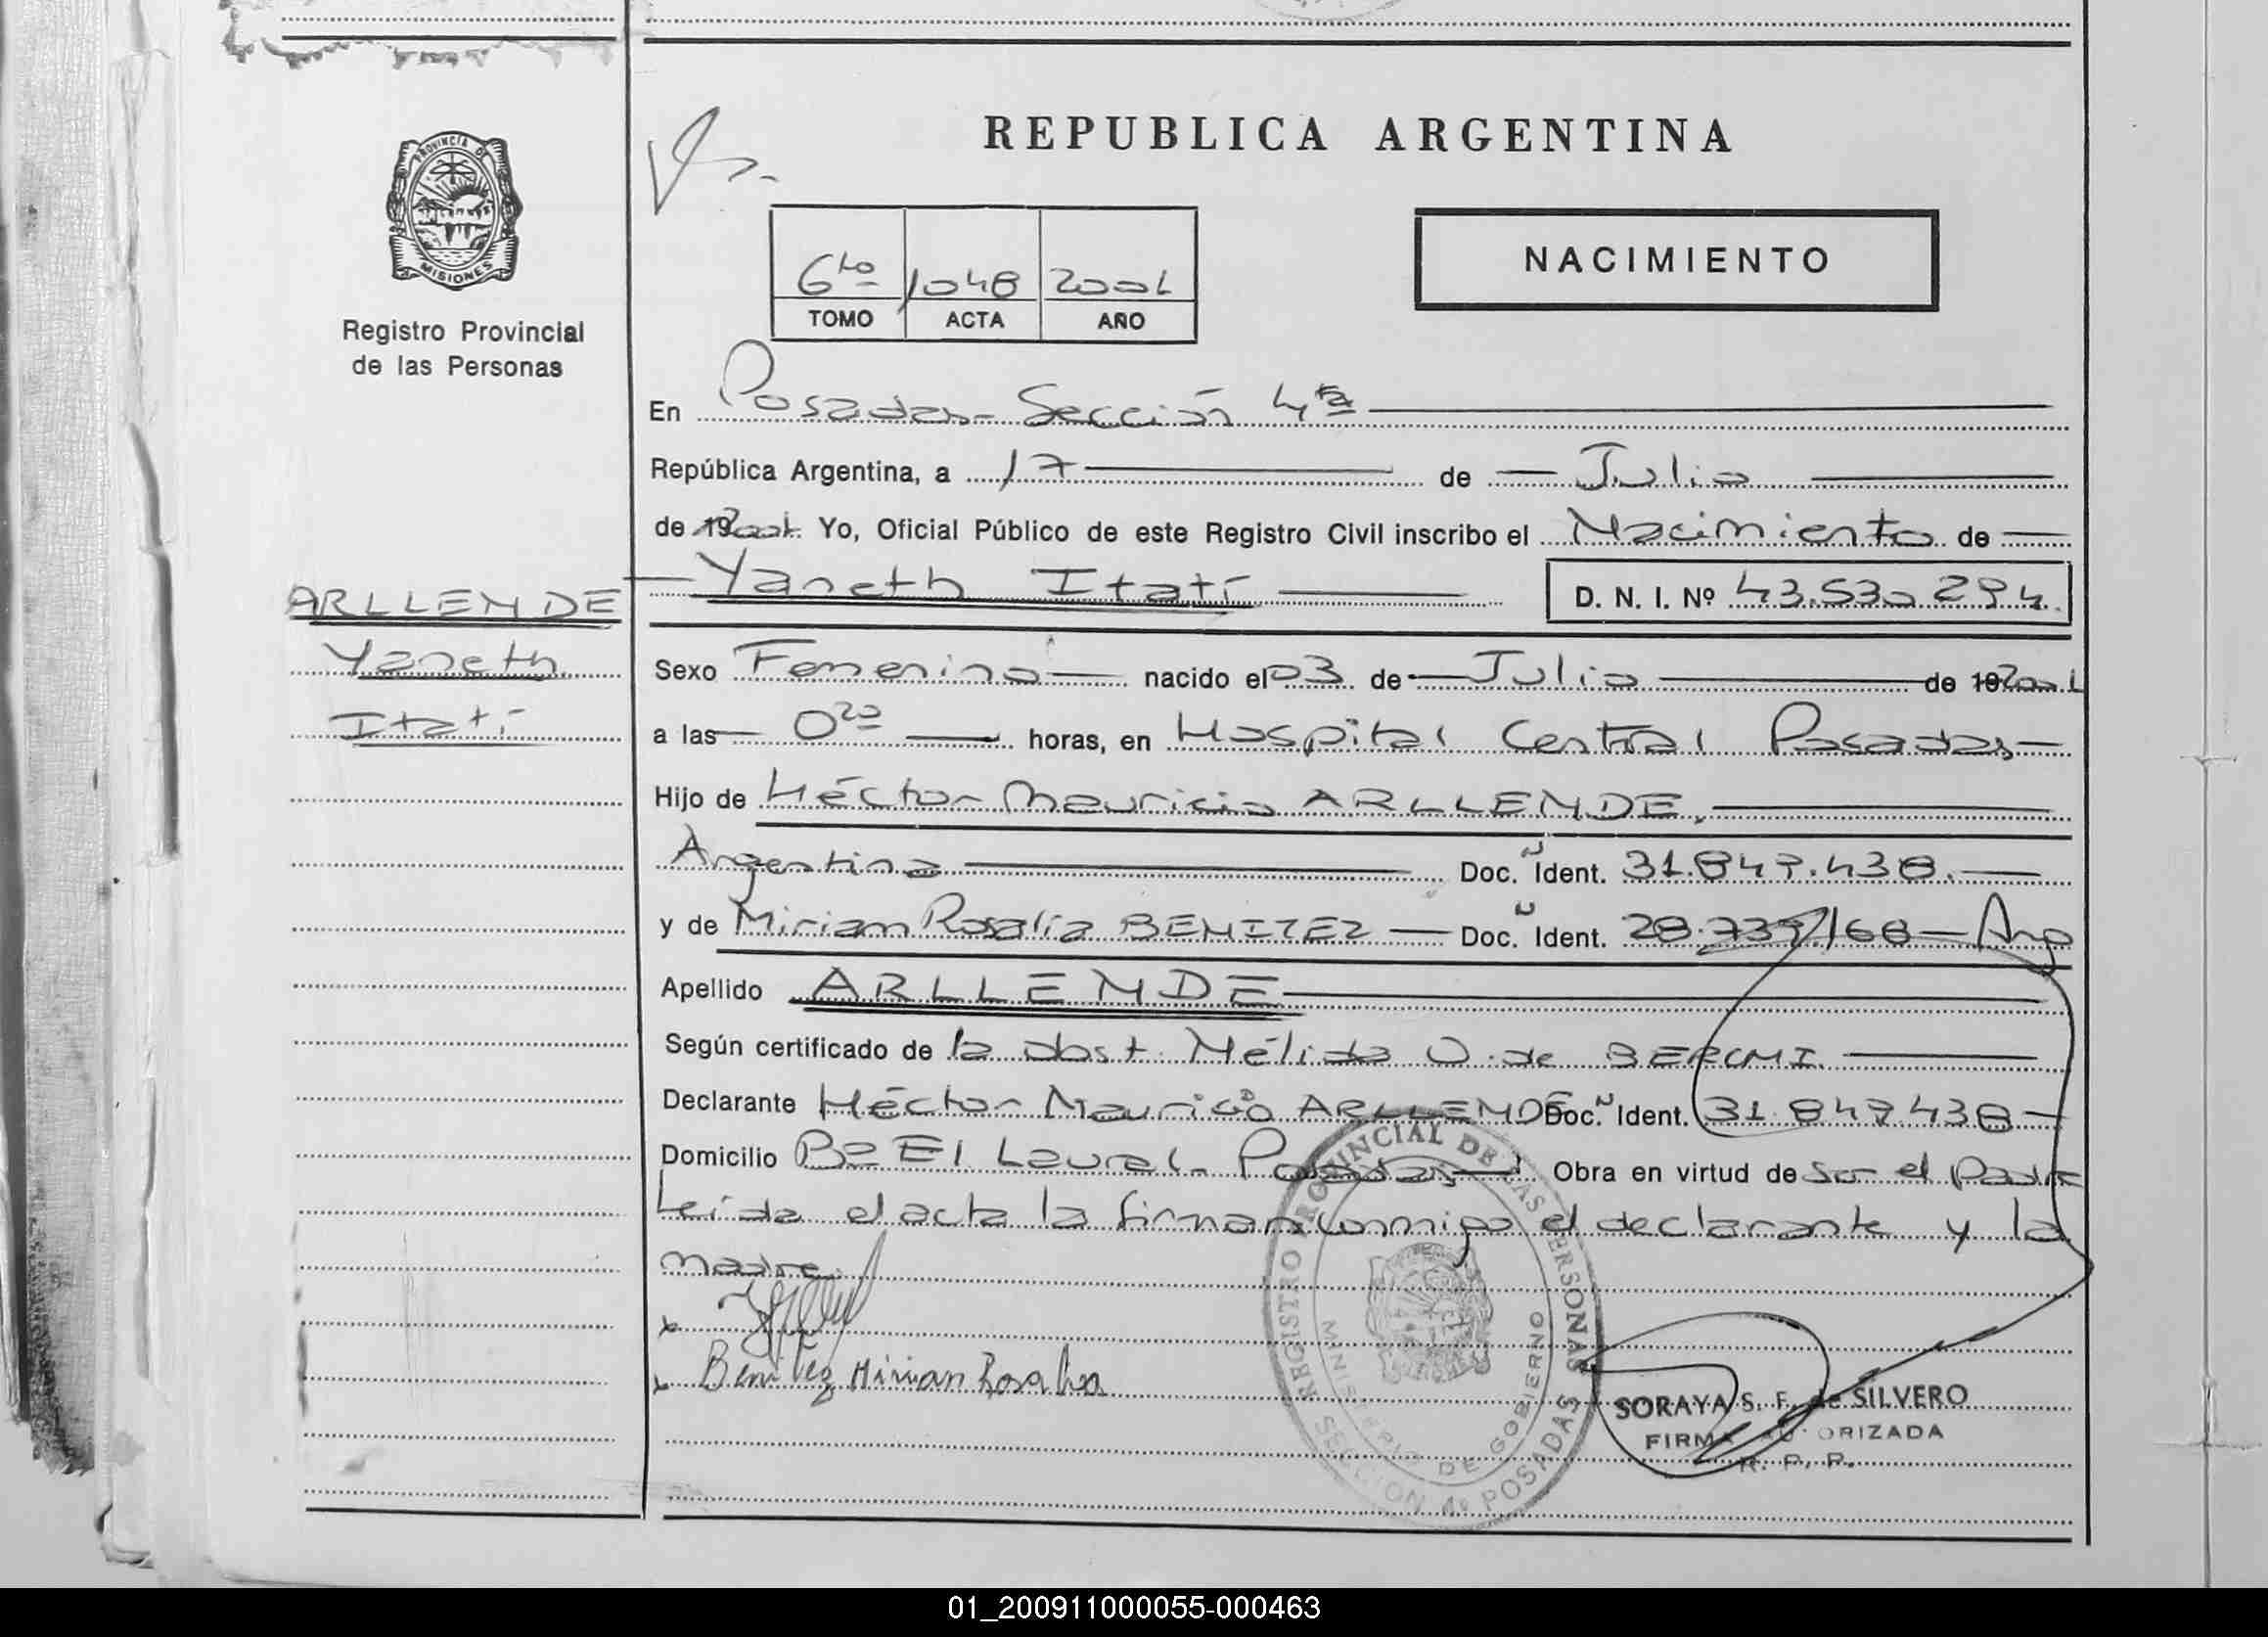 REPUBLICA ARGENTINA
PROVINCIA DE
MISIONES
Registro Provincial
de las Personas
6to 1048 2001
TOMO ACTA AÑO
NACIMIENTO
En Posadas- Sección 4ta
República Argentina, a 17 de Julio
de 19 2001 Yo, Oficial Público de este Registro Civil inscribo el Nacimiento de
Yaneth Itatí D. N. I. Nº 43.530 294.
ARLLENDE
Yaneth
Itatí
Sexo Femenino nacido el 03 de Julio de 19 2001
a las 0 20 horas, en Hospital Central Posadas
Hijo de Héctor Mauricio ARLLENDE.
Argentina Doc. Ñ Ident. 31.847.438.
y de Miriam Rosalía BENITEZ Doc. Ñ Ident. 28.739168 Arg
Apellido ARLLENDE
Según certificado de la obst. Nélida O. de
Declarante Héctor Mauricio ARLLENDE Doc. Ñ Ident. 31.847.438
Domicilio Bo El Laurel- Posadas Obra en virtud de Ser el Padre
Leída el acta la firman conmigo el declarante y la
madre.
x
x Benitez Miriam Rosalia
REGISTRO PROVINCIAL DE LAS PERSONAS
MINISTERIO DE GOBIERNO
SECCION 4º POSADAS
SORAYA S. F. de SILVERO
FIRMA AUTORIZADA
R. P. P.
01_200911000055-000463